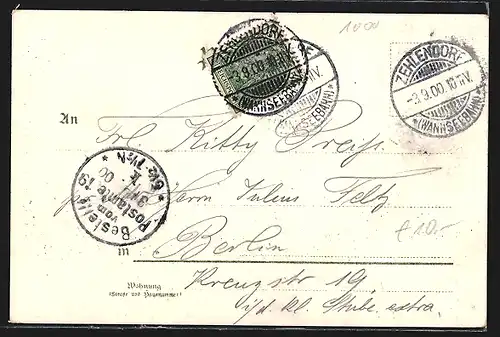 1000
ZEHLENDORF
-3.9.00.10-11V.
*(WANNSEEBAHN)*
ZEHLENDORF
-3.9.00.10-11V.
*(WANNSEEBAHN)*
An
Frl. Kitty
Herrn Julius
Bestellt
vom
Postamte 19
3/9. 00
in
Berlin
£10.-
Wohnung
(Straße und Hausnummer)
19
Stube extra.